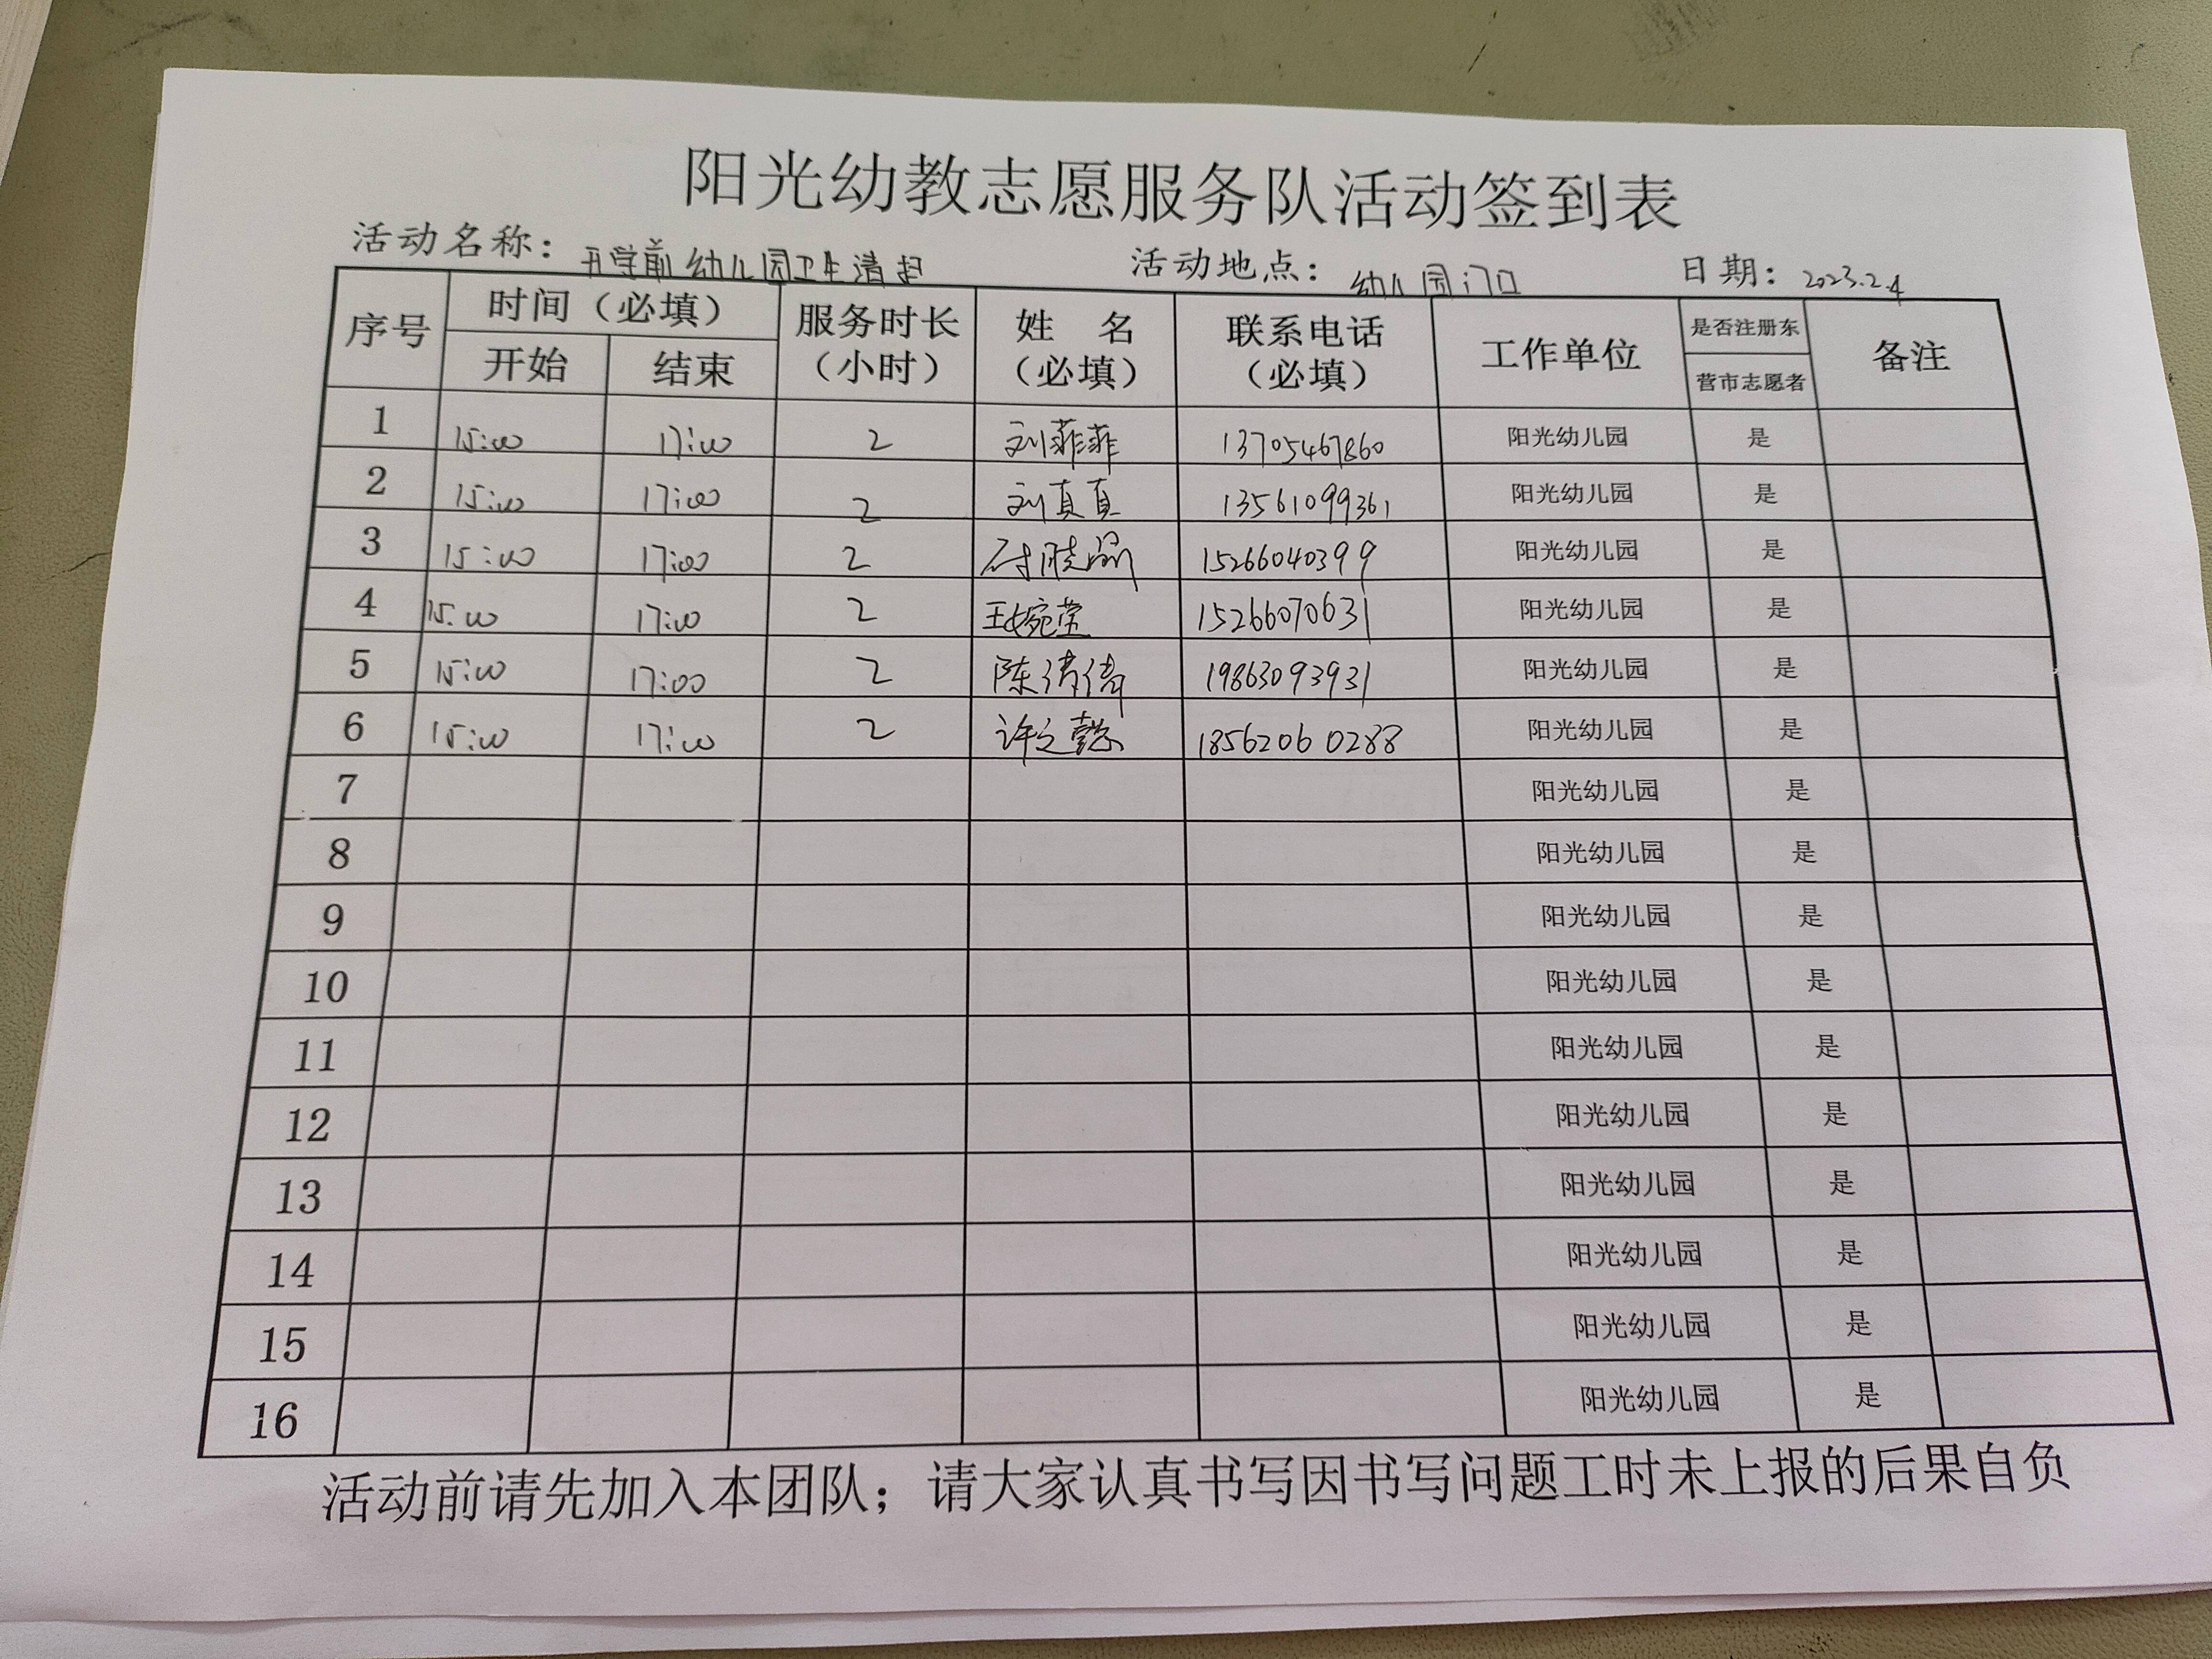 阳光幼教志愿服务队活动签到表
活动名称：开学前幼儿园卫生清扫 活动地点：幼儿园门口 日期：2023.2.4
序号 时间（必填） 服务时长（小时） 姓 名（必填） 联系电话（必填） 工作单位 是否注册东营市志愿者 备注
开始 结束
1 15:00 17:00 2 刘菲菲 13705467860 阳光幼儿园 是
2 15:00 17:00 2 刘真真 13561099361 阳光幼儿园 是
3 15:00 17:00 2 15266040399 阳光幼儿园 是
4 15:00 17:00 2 王婉莹 15266070631 阳光幼儿园 是
5 15:00 17:00 2 陈倩倩 19863093931 阳光幼儿园 是
6 15:00 17:00 2 许之懿 18562060288 阳光幼儿园 是
7 阳光幼儿园 是
8 阳光幼儿园 是
9 阳光幼儿园 是
10 阳光幼儿园 是
11 阳光幼儿园 是
12 阳光幼儿园 是
13 阳光幼儿园 是
14 阳光幼儿园 是
15 阳光幼儿园 是
16 阳光幼儿园 是
活动前请先加入本团队；请大家认真书写因书写问题工时未上报的后果自负